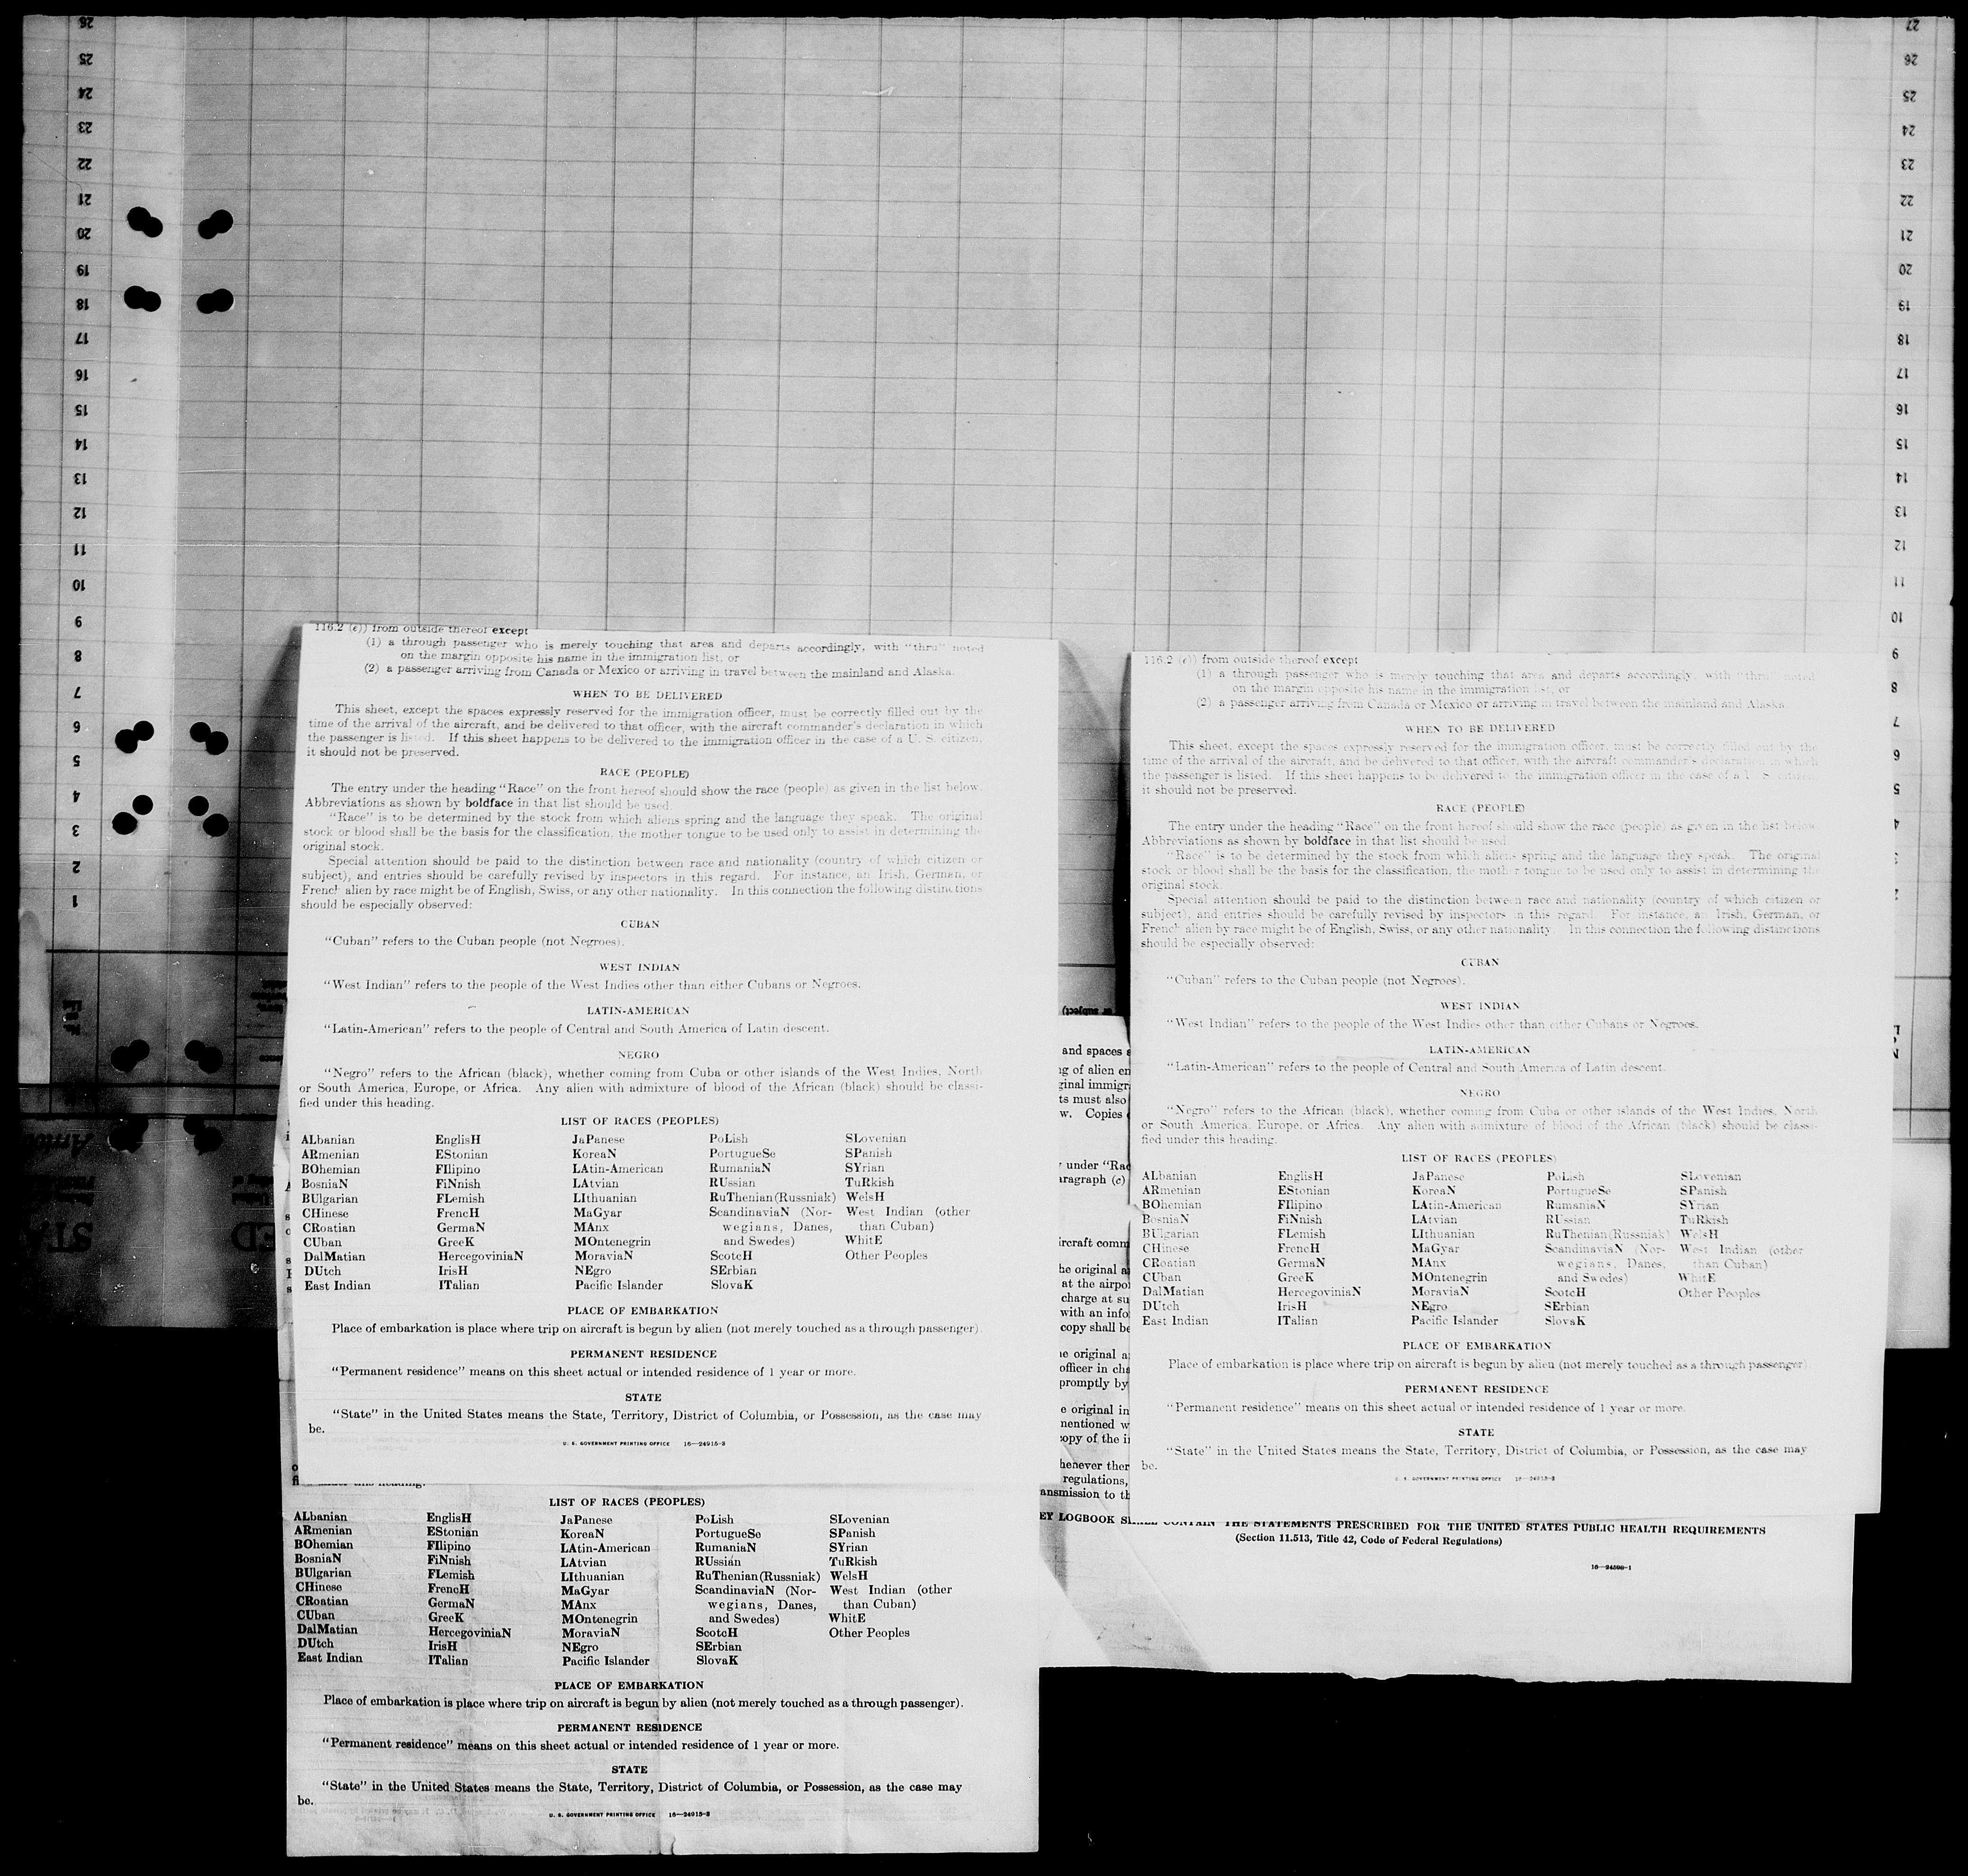 116.2 (e)) from outside thereof except
(1) a through passenger who is merely touching that area and departs accordingly, with "thru" noted
on the margin opposite his name in the immigration list, or
(2) a passenger arriving from Canada or Mexico or arriving in travel between the mainland and Alaska.
WHEN TO BE DELIVERED
This sheet, except the spaces expressly reserved for the immigration officer, must be correctly filled out by the
time of the arrival of the aircraft, and be delivered to that officer, with the aircraft commander's declaration in which
the passenger is listed. If this sheet happens to be delivered to the immigration officer in the case of a U. S. citizen,
it should not be preserved.
RACE (PEOPLE)
The entry under the heading "Race" on the front hereof should show the race (people) as given in the list below.
Abbreviations as shown by boldface in that list should be used.
"Race" is to be determined by the stock from which aliens spring and the language they speak. The original
stock or blood shall be the basis for the classification, the mother tongue to be used only to assist in determining the
original stock.
Special attention should be paid to the distinction between race and nationality (country of which citizen or
subject), and entries should be carefully revised by inspectors in this regard. For instance, an Irish, German, or
French alien by race might be of English, Swiss, or any other nationality. In this connection the following distinctions
should be especially observed:
CUBAN
"Cuban" refers to the Cuban people (not Negroes).
WEST INDIAN
"West Indian" refers to the people of the West Indies other than either Cubans or Negroes.
LATIN-AMERICAN
"Latin-American" refers to the people of Central and South America of Latin descent.
NEGRO
"Negro" refers to the African (black), whether coming from Cuba or other islands of the West Indies, North
or South America, Europe, or Africa. Any alien with admixture of blood of the African (black) should be classi-
fied under this heading.
LIST OF RACES (PEOPLES)
ALbanian EnglisH JaPanese PoLish SLovenian
ARmenian EStonian KoreaN PortugueSe SPanish
BOhemian FIlipino LAtin-American RumaniaN SYrian
BosniaN FiNnish LAtvian RUssian TuRkish
BUlgarian FLemish LIthuanian RuThenian(Russniak) WelsH
CHinese FrencH MaGyar ScandinaviaN (Nor- West Indian (other
CRoatian GermaN MAnx wegians, Danes, than Cuban)
CUban GreeK MOntenegrin and Swedes) WhitE
DalMatian HercegoviniaN MoraviaN ScotcH Other Peoples
DUtch IrisH NEgro SErbian
East Indian ITalian Pacific Islander SlovaK
PLACE OF EMBARKATION
Place of embarkation is place where trip on aircraft is begun by alien (not merely touched as a through passenger).
PERMANENT RESIDENCE
"Permanent residence" means on this sheet actual or intended residence of 1 year or more.
STATE
"State" in the United States means the State, Territory, District of Columbia, or Possession, as the case may
be.
U. S. GOVERNMENT PRINTING OFFICE 16—24915-2
LIST OF RACES (PEOPLES)
ALbanian EnglisH JaPanese PoLish SLovenian
ARmenian EStonian KoreaN PortugueSe SPanish
BOhemian FIlipino LAtin-American RumaniaN SYrian
BosniaN FiNnish LAtvian RUssian TuRkish
BUlgarian FLemish LIthuanian RuThenian(Russniak) WelsH
CHinese FrencH MaGyar ScandinaviaN (Nor- West Indian (other
CRoatian GermaN MAnx wegians, Danes, than Cuban)
CUban GreeK MOntenegrin and Swedes) WhitE
DalMatian HercegoviniaN MoraviaN ScotcH Other Peoples
DUtch IrisH NEgro SErbian
East Indian ITalian Pacific Islander SlovaK
PLACE OF EMBARKATION
Place of embarkation is place where trip on aircraft is begun by alien (not merely touched as a through passenger).
PERMANENT RESIDENCE
"Permanent residence" means on this sheet actual or intended residence of 1 year or more.
STATE
"State" in the United States means the State, Territory, District of Columbia, or Possession, as the case may
be.
U. S. GOVERNMENT PRINTING OFFICE 16—24915-2
and spaces
g of alien en
ginal immigr
ts must also
w. Copies
under "Rac
aragraph (c)
ircraft comm
he original a
at the airpor
charge at su
with an info
copy shall be
e original a
officer in cha
promptly by
e original in
mentioned w
copy of the i
henever ther
regulations,
ansmission to th
EY LOGBOOK SHALL CONTAIN THE STATEMENTS PRESCRIBED FOR THE UNITED STATES PUBLIC HEALTH REQUIREMENTS
(Section 11.513, Title 42, Code of Federal Regulations)
16—24598-1
116.2 (e)) from outside thereof except
(1) a through passenger who is merely touching that area and departs accordingly, with "thru" noted
on the margin opposite his name in the immigration list, or
(2) a passenger arriving from Canada or Mexico or arriving in travel between the mainland and Alaska.
WHEN TO BE DELIVERED
This sheet, except the spaces expressly reserved for the immigration officer, must be correctly filled out by the
time of the arrival of the aircraft, and be delivered to that officer, with the aircraft commander's declaration in which
the passenger is listed. If this sheet happens to be delivered to the immigration officer in the case of a U. S. citizen,
it should not be preserved.
RACE (PEOPLE)
The entry under the heading "Race" on the front hereof should show the race (people) as given in the list below.
Abbreviations as shown by boldface in that list should be used.
"Race" is to be determined by the stock from which aliens spring and the language they speak. The original
stock or blood shall be the basis for the classification, the mother tongue to be used only to assist in determining the
original stock.
Special attention should be paid to the distinction between race and nationality (country of which citizen or
subject), and entries should be carefully revised by inspectors in this regard. For instance, an Irish, German, or
French alien by race might be of English, Swiss, or any other nationality. In this connection the following distinctions
should be especially observed:
CUBAN
"Cuban" refers to the Cuban people (not Negroes).
WEST INDIAN
"West Indian" refers to the people of the West Indies other than either Cubans or Negroes.
LATIN-AMERICAN
"Latin-American" refers to the people of Central and South America of Latin descent.
NEGRO
"Negro" refers to the African (black), whether coming from Cuba or other islands of the West Indies, North
or South America, Europe, or Africa. Any alien with admixture of blood of the African (black) should be classi-
fied under this heading.
LIST OF RACES (PEOPLES)
ALbanian EnglisH JaPanese PoLish SLovenian
ARmenian EStonian KoreaN PortugueSe SPanish
BOhemian FIlipino LAtin-American RumaniaN SYrian
BosniaN FiNnish LAtvian RUssian TuRkish
BUlgarian FLemish LIthuanian RuThenian(Russniak) WelsH
CHinese FrencH MaGyar ScandinaviaN (Nor- West Indian (other
CRoatian GermaN MAnx wegians, Danes, than Cuban)
CUban GreeK MOntenegrin and Swedes) WhitE
DalMatian HercegoviniaN MoraviaN ScotcH Other Peoples
DUtch IrisH NEgro SErbian
East Indian ITalian Pacific Islander SlovaK
PLACE OF EMBARKATION
Place of embarkation is place where trip on aircraft is begun by alien (not merely touched as a through passenger).
PERMANENT RESIDENCE
"Permanent residence" means on this sheet actual or intended residence of 1 year or more.
STATE
"State" in the United States means the State, Territory, District of Columbia, or Possession, as the case may
be.
U. S. GOVERNMENT PRINTING OFFICE 16—24915-2